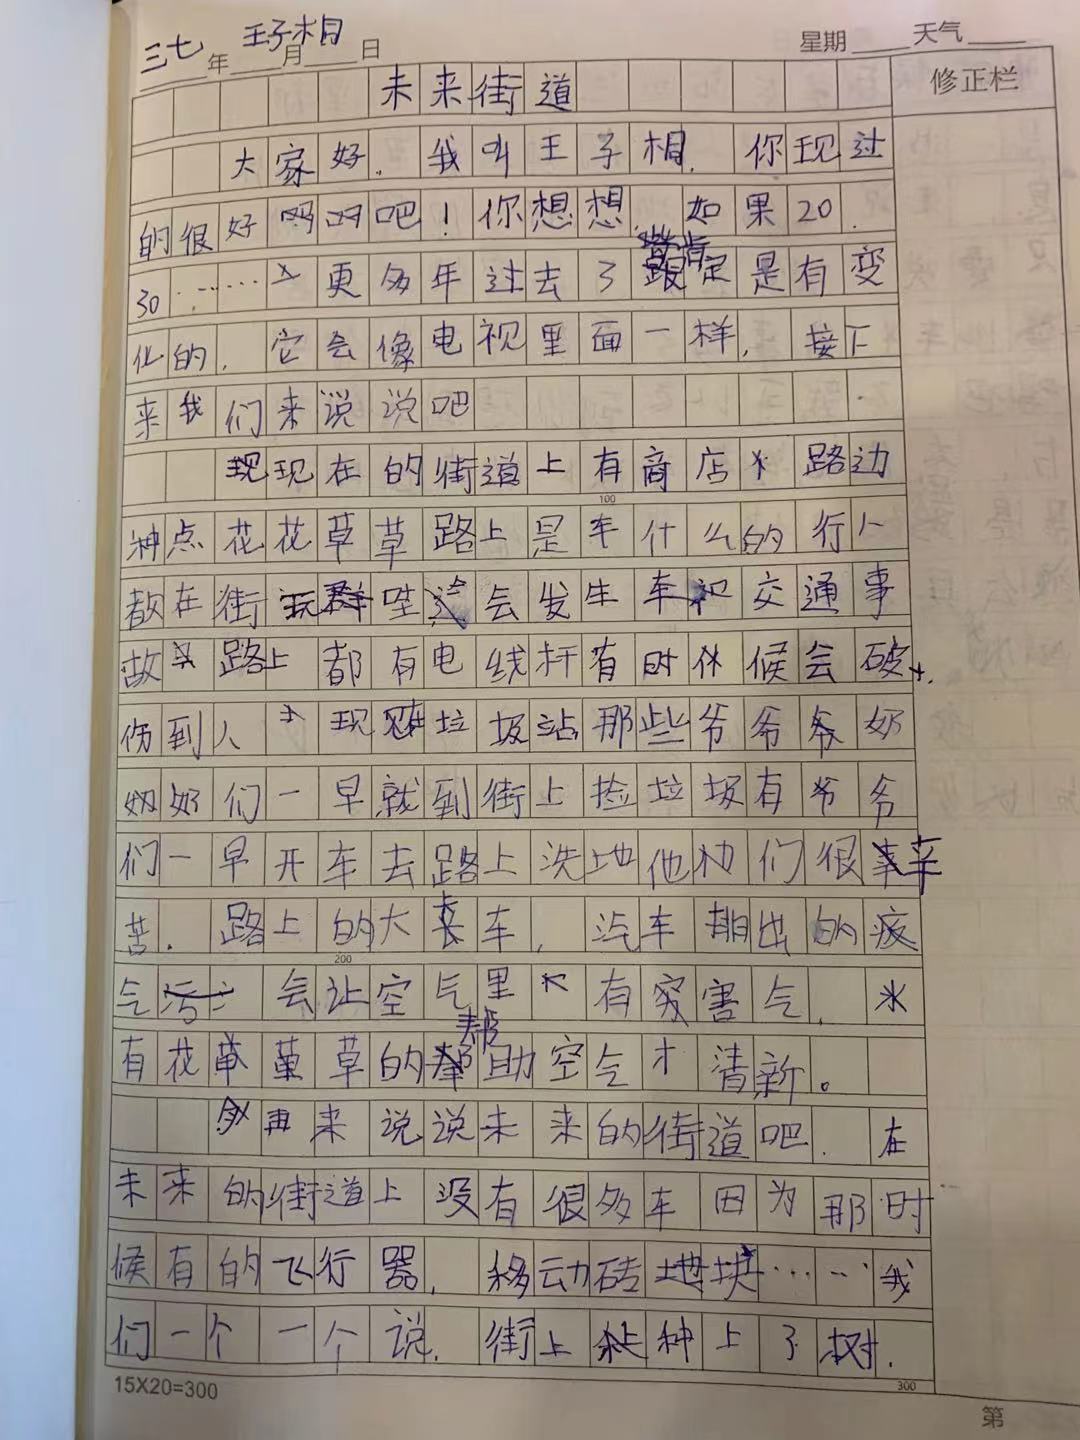 三七年 王子相 月 日 星期 天气
修正栏
未来街道
大家好.我叫王子相.你现过
的很好吗啊吧!你想想.如果20.
30……更多年过去了肯定是有变
化的.它会像电视里面一样,接下
来我们来说说吧
现在的街道上有商店 路边
种点花花草草路上是车什么的行人
都在街 哇 会发生 交通事
故 路上都有电线杆有时休候会破
伤到人 现在垃圾站那些爷爷奶
奶奶们一早就到街上捡垃圾有爷爷
们一早开车去路上洗地他们很辛
苦.路上的大 车,汽车排出的疲
气 会让空气里 有 害气,
有花草 草的帮助空气才清新。
再来说说未来的街道吧.在
未来的街道上没有很多车因为那时
候有的飞行器,移动砖地块……我
们一个一个说.街上种上了树.
100
200
300
15X20=300
第